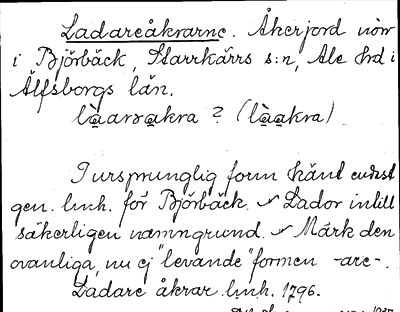 Ladareåkrarne. Åkerjord norr
i Björbäck, Starrkärrs s:n, Ale hrd i
Älfsborgs län.
làarakra ? (làakra)
I ursprunglig form känt endast
gen. lmh. för Björbäck. Lador intill
säkerligen namngrund. Märk den
ovanliga, nu ej "levande" formen -are-.
Ladare åkrar lmh. 1796.